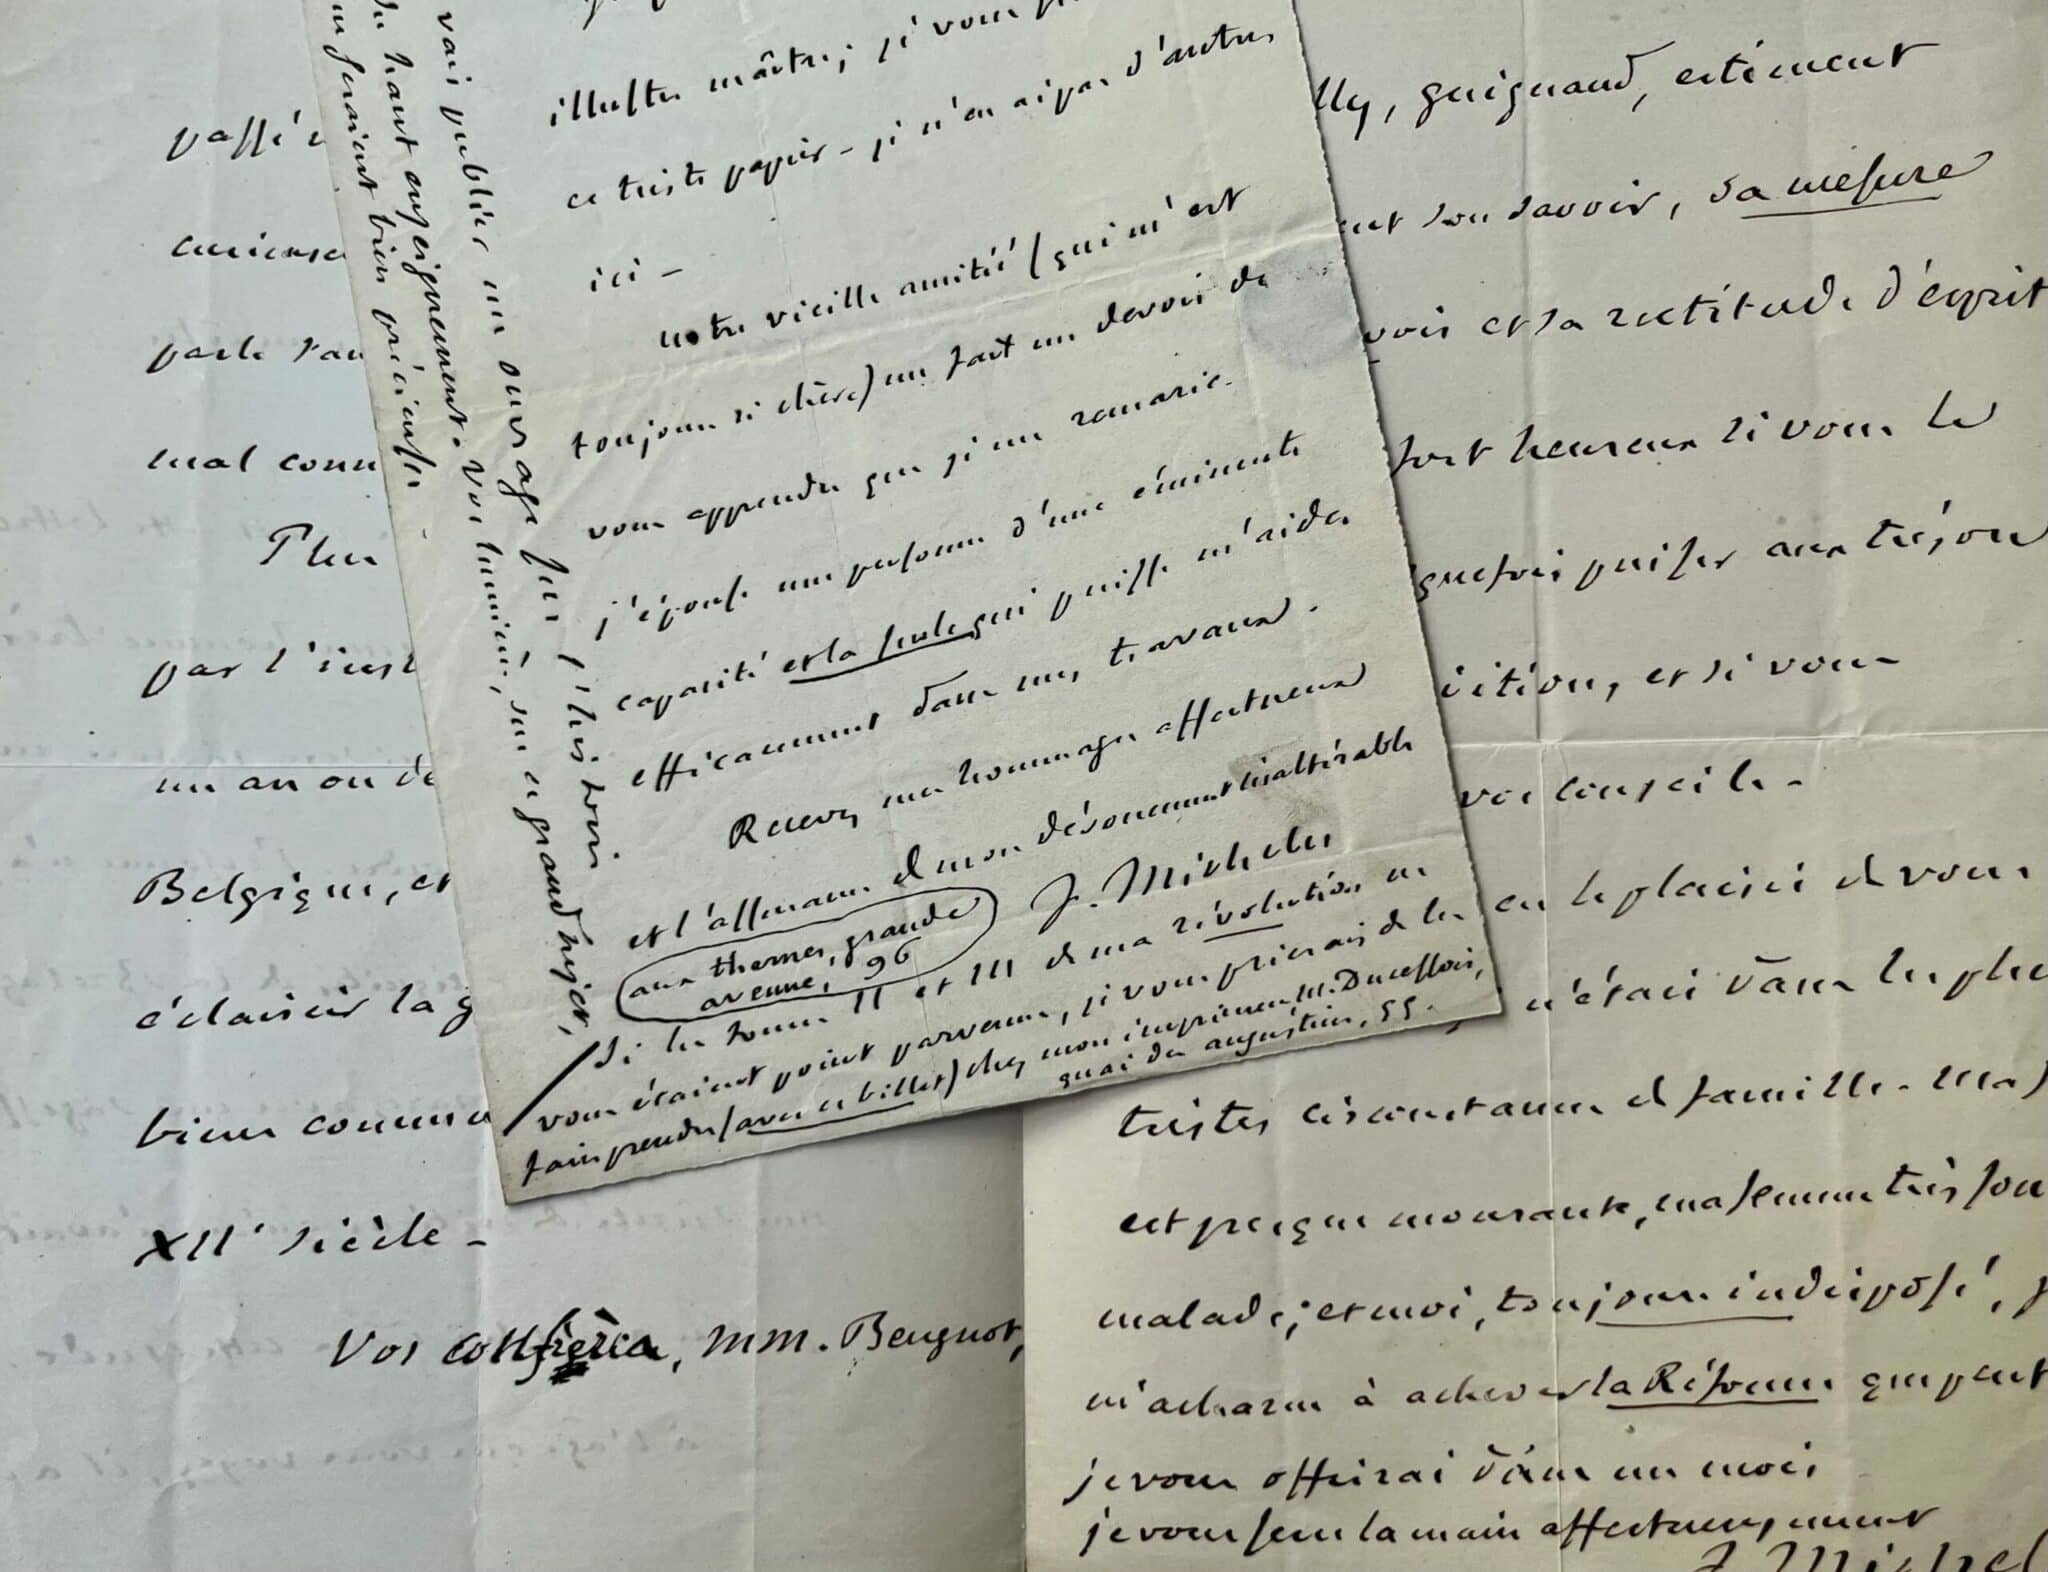 illustre maître; si vous
ce triste papier - je n'en ai pas d'autre,
ici -
notre vieille amitié (qui m'est
toujours si chère) me fait un devoir de
vous apprendre que je me remarie.
j'épouse une personne d'une éminente
capacité et la seule qui puisse m'aider
efficacement dans mes travaux.
Recevez mes hommages affectueux
et l'assurance de mon dévouement inaltérable
J. Michelet
aux thermes, grande
avenue, 96
Si les tomes II et III de ma révolution ne
vous étaient point parvenus, je vous prierais de les
faire prendre (avec ce billet) chez mon imprimeur, M. Ducessois,
quai des augustins, 55.
vais publier un ouvrage sur l'histoire
du haut enseignement. Vos lumières, sur ce grand sujet,
me seraient bien précieuses
passé
curieuse
parle
mal
Plus
par l'inst
un an ou de
Belgique, et
éclaircir la g
bien connu
XIIe siècle -
Vos confrères, MM. Beugnot,
lly, guignaud, estiment
ent son savoir, sa mesure
voir et sa rectitude d'esprit
fort heureux si vous le
quefois puiser aux trésors
ition, et si vous
vos conseils -
en le plaisir de vous
n'étais dans les plus
tristes circonstances de famille.
est presque mourante, ma femme très sou
malade; et moi, toujours indisposé, j
m'acharne à achever la Réforme que peut
je vous offrirai dans un mois
je vous serre la main affectueusement
J. Michel